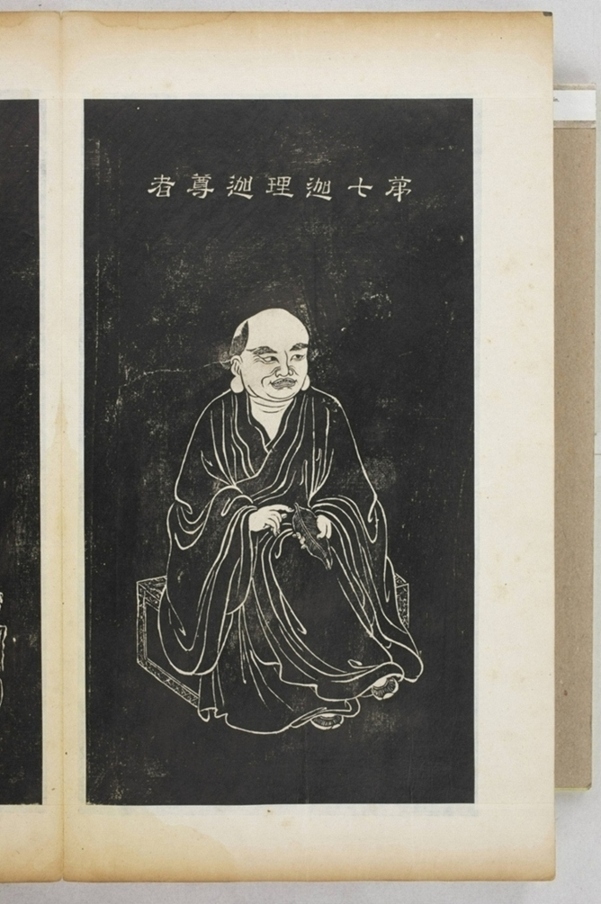 第七迦理迦尊者